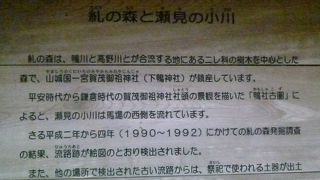 糺の森と瀬見の小川
糺の森は、鴨川と高野川とが合流する地にあるニレ科の樹木を中心とした
森で、山城国一宮賀茂御祖神社（下鴨神社）が鎮座しています。
平安時代から鎌倉時代の賀茂御祖神社社頭の景観を描いた「鴨社古圖」に
よると、瀬見の小川は馬場の西側を流れています。
さる平成二年から四年（1990～1992）にかけての糺の森発掘調査
の結果、流路跡が絵図のとおり検出されました。
また、他の場所で検出された古い流路からは、祭祀で使われる土器が出土